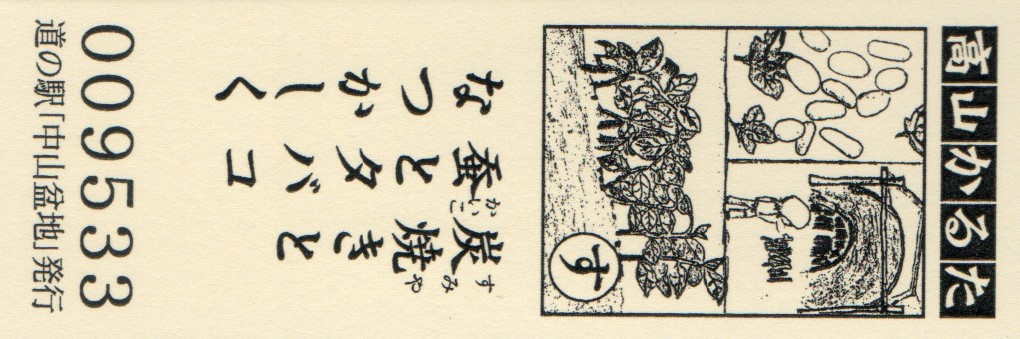 高山かるた
す
炭焼きと
すみや
蚕とタバコ
かいこ
なつかしく
009533
道の駅「中山盆地」発行